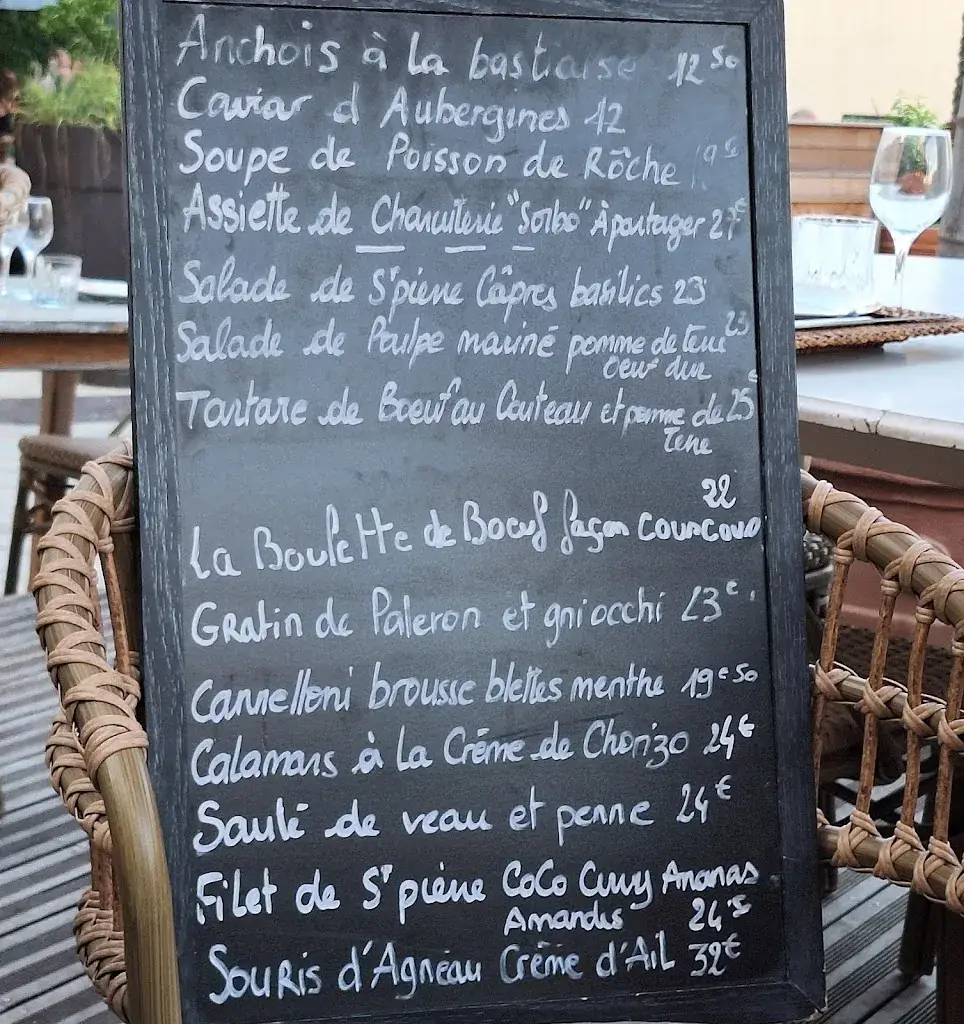 Anchois à la bastiaise 12 50
Caviar d Aubergines 12
Soupe de Poisson de Rôche
Assiette de Charcuterie "Sorbo" À partager 27€
Salade de St pierre Câpres basilics 23
Salade de Poulpe mariné pomme de terre 23
oeuf dur
Tartare de Boeuf au Couteau et pomme de 25€
terre
22
La Boulette de Boeuf façon couscous
Gratin de Paleron et gniocchi 23€.
Cannelloni brousse blettes menthe 19€50
Calamars à La Crême de Chorizo 24€
Sauté de veau et penne 24€
Filet de St pierre CoCo Curry Ananas
Amandes 24
Souris d'Agneau Crême d'Ail 32€